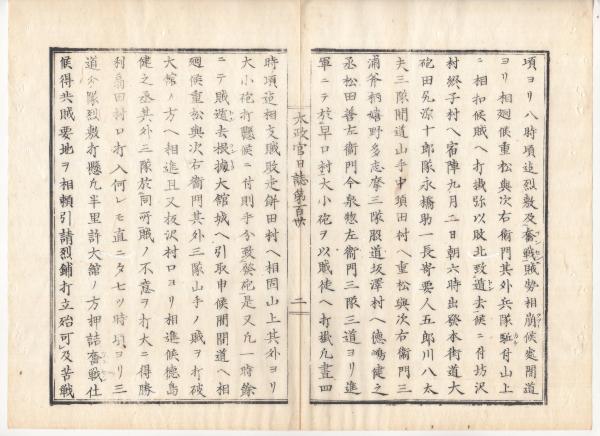 頃ヨリ八時頃迄烈敷及奮戰賊勢相崩候處間道
ヨリ相廻候重松與次右衛門其外兵隊馳付山上
ニ相扣候賊ヘ打掛弥以敗北致遁去候ニ付坊沢
村終子村ヘ宿陣九月二日朝六時出發本街道大
砲田尻源十郎隊永橋助一長嵜要人五郎川八太
夫三隊間道山手中項田村ヘ重松與次右衛門三
浦斧柄嬉野多志摩三隊股道坂澤村ヘ德嶋健之
丞松田善左衛門今泉惣左衛門三隊三道ヨリ進
軍ニテ於早口村大小砲ヲ以賊徒ヘ打掛九晝四
太政官日誌第百廿
二
時頃迄相支賊敗走餅田村ヘ相固山上其外ヨリ
大小砲打懸候ニ付則手分致發砲是又九一時餘
ニテ賊遁去根據大館城ヘ引取申候間間道ヘ相
廻候重松與次右衛門其外三隊山手ノ賊ヲ打破
大館ノ方ヘ相進且又板沢村口ヨリ相進候德島
健之丞其外三隊於同所賊ノ不意ヲ打大ニ得勝
利扇田村口打入何レモ直ニ夕七ツ時頃ヨリ三
道分隊烈敷打懸九半里許大館ノ方押詰奮戰仕
候得共賊要地ヲ相頼引請烈鋪打立殆可及苦戰